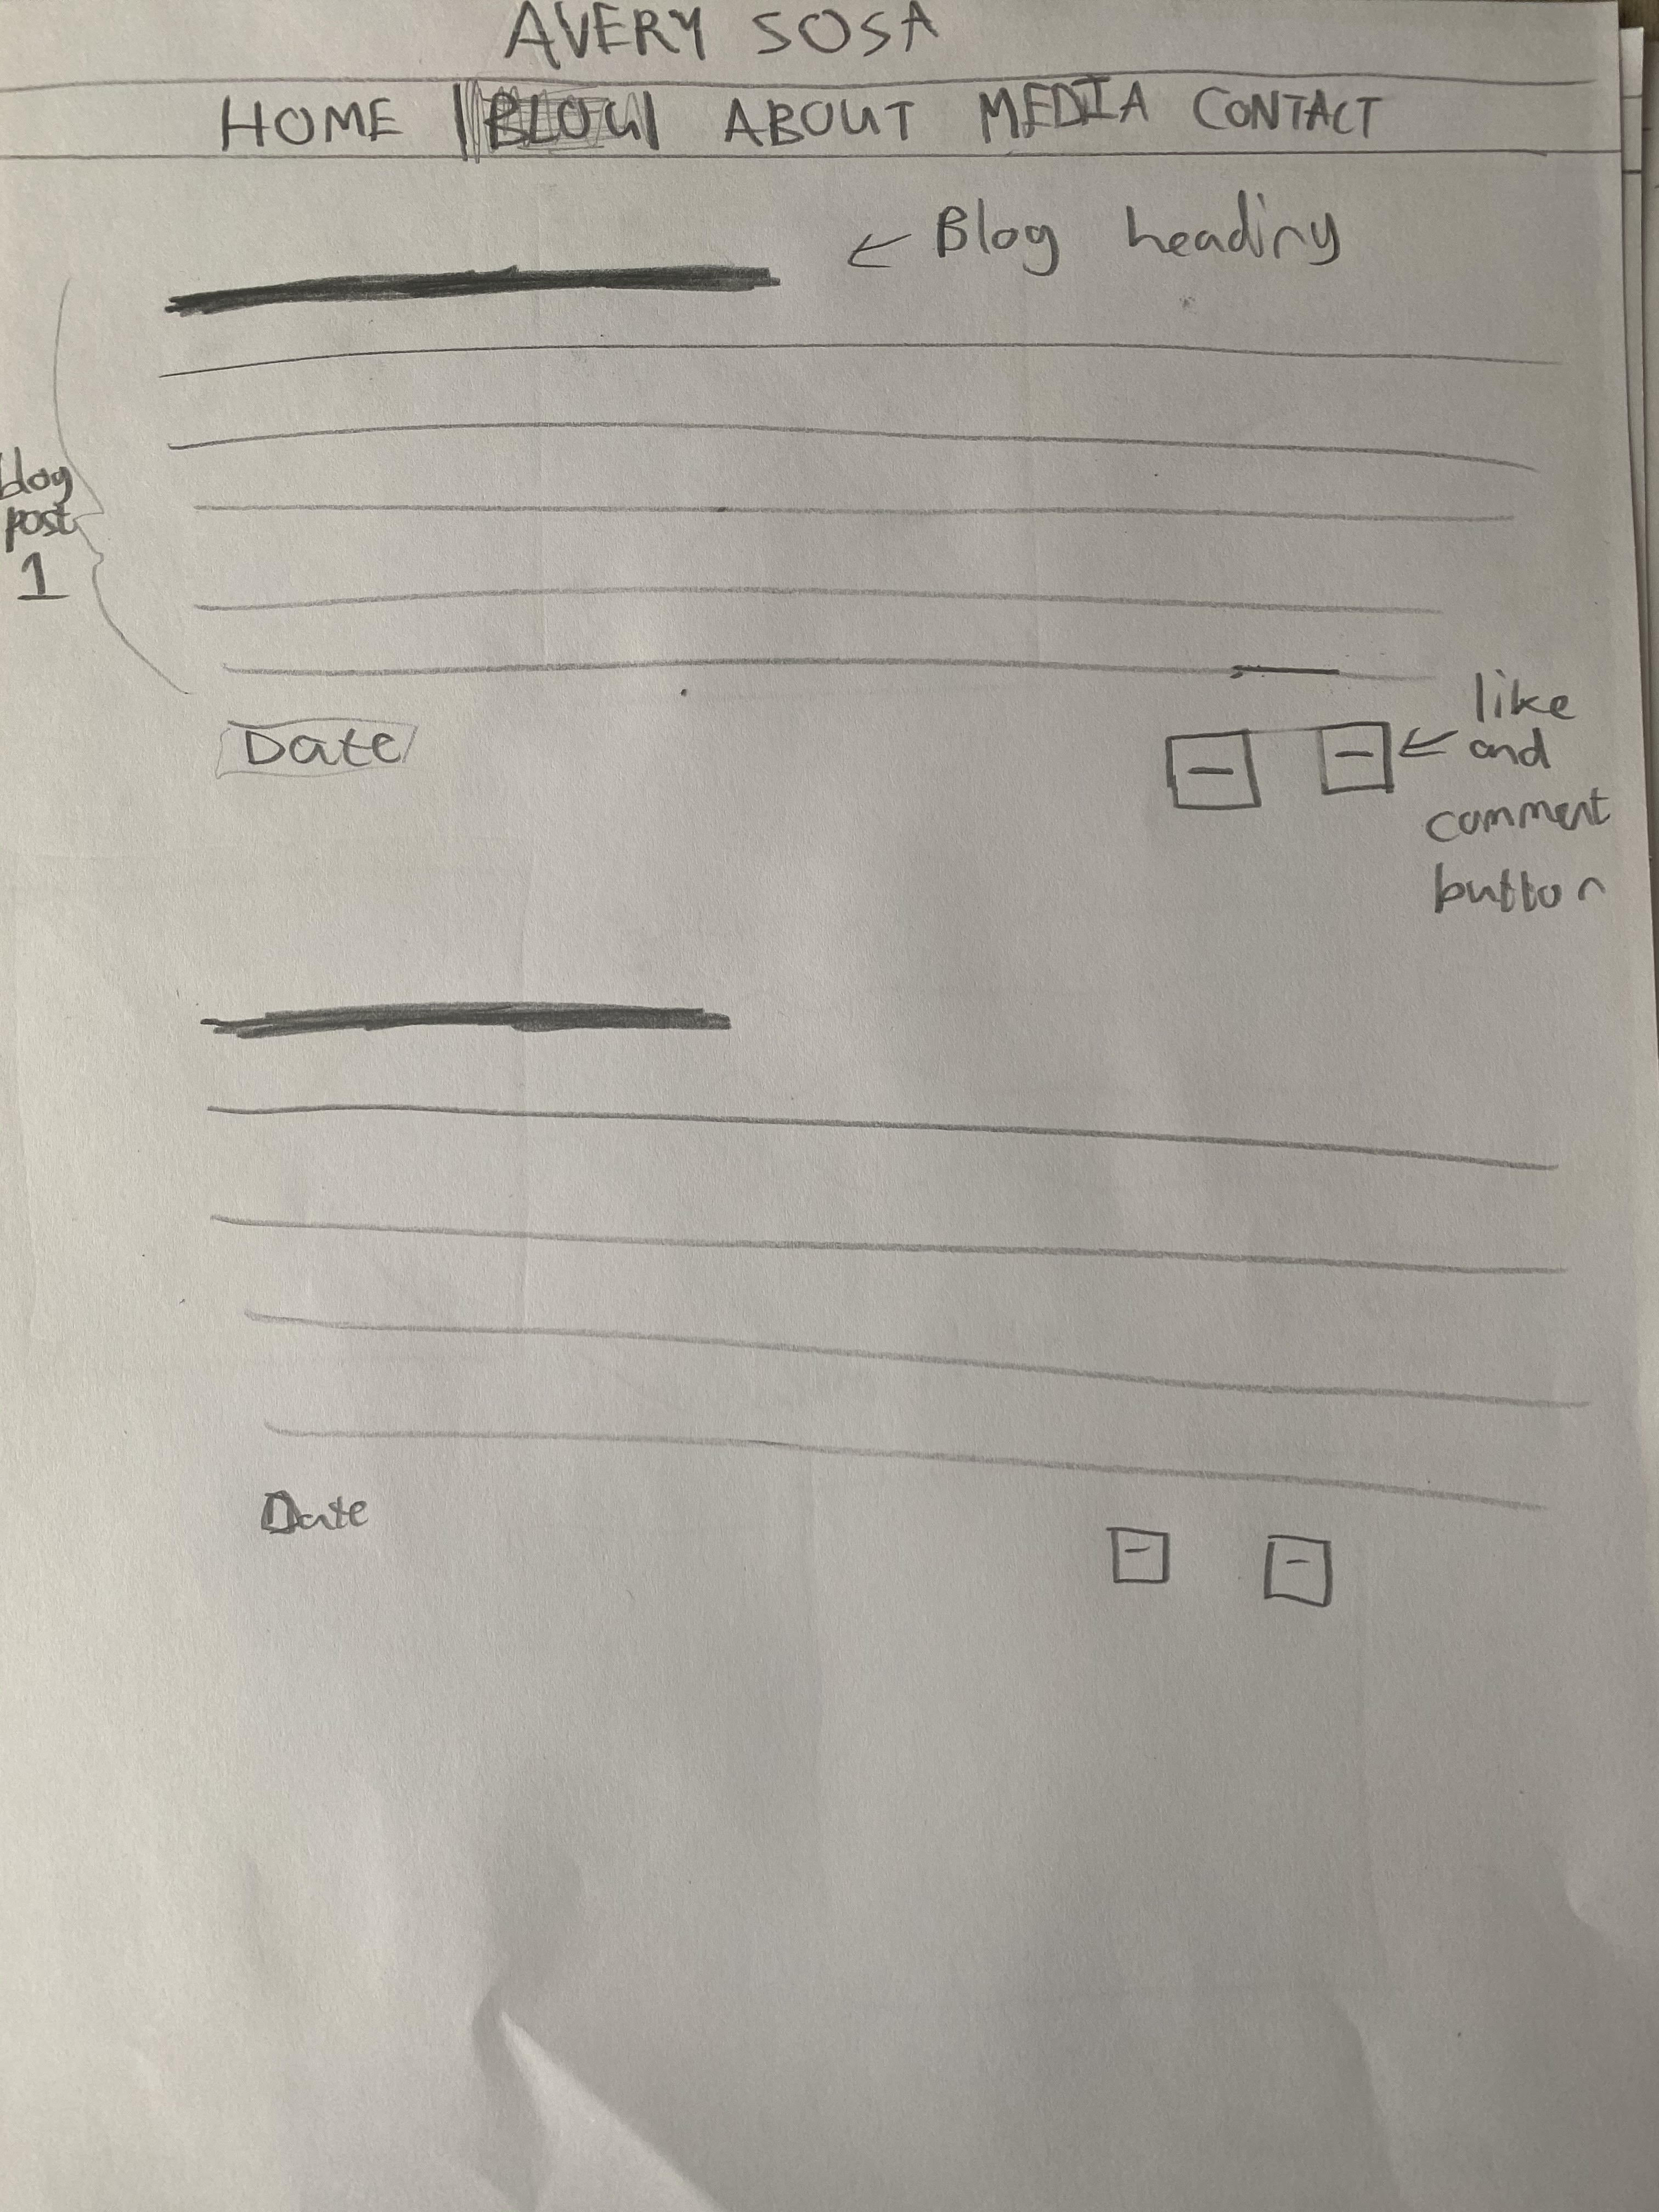 AVERY SOSA
HOME BLOG ABOUT MEDIA CONTACT
Blog heading
blog
post
1
Date
like
and
comment
button
Date